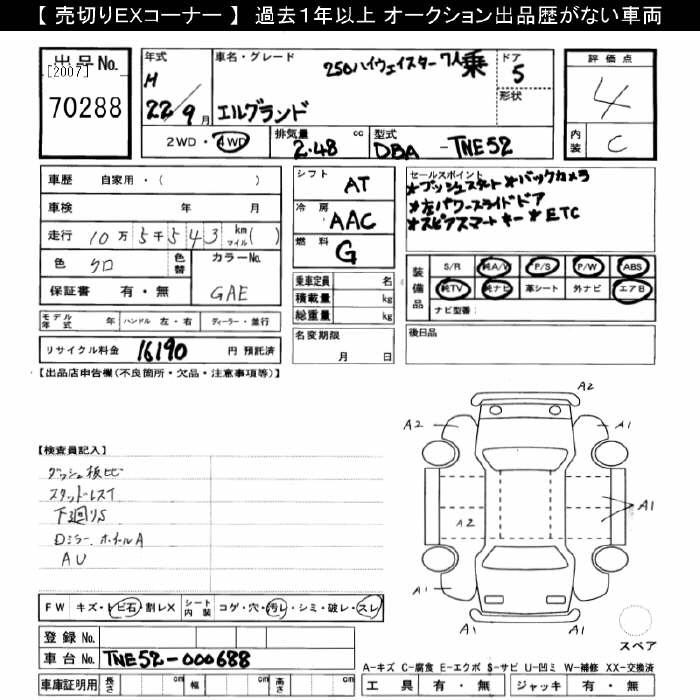 【 売切りEXコーナー 】 過去１年以上 オークション出品歴がない車両
出品No.
[2007]
70288
年式
H
22/9月
車名・グレード
250ハイウェイスター 7人乗
エルグランド
ドア
5
形状
評価点
4
内装
C
2WD・4WD
排気量
2.48
cc
型式
DBA - TNE52
車歴 自家用・( )
車検 年 月
走行 10万5千543 km マイル( )
色 クロ
色替
カラーNo.
GAE
保証書 有・無
モデル年式 年 ハンドル 左・右 ディーラー・並行
リサイクル料金 16190 円 預託済
シフト AT
冷房 AAC
燃料 G
乗車定員 名
積載量 kg
総重量 kg
名変期限
月 日
セールスポイント
*プッシュスタート *バックカメラ
*左パワースライドドア
*スピアスマートキー *ETC
装備品
S/R 純A/V P/S P/W ABS
純TV 純ナビ 革シート 外ナビ エアB
ナビ型番：
後日品
【出品店申告欄(不良箇所・欠品・注意事項等)】
【検査員記入】
ダッシュ板ヒビ
スタッドレスT
下回りS
Dミラー、ホイールA
AU
A2
A2
A1
A2
A1
A1
A1
A1
スペア
FW キズ・トビ石・割レX シート内装 コゲ・穴・汚レ・シミ・破レ・スレ
登録No.
車台No. TNE52-000688
車庫証明用 長さ cm 幅 cm 高さ cm
A-キズ C-腐食 E-エクボ S-サビ U-凹ミ W-補修 XX-交換済
工具 有・無 ジャッキ 有・無